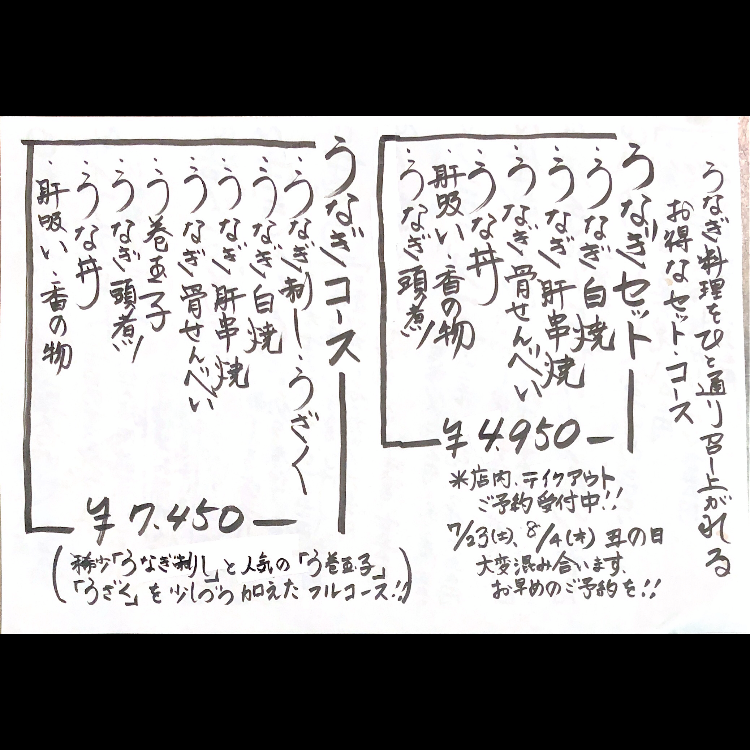 うなぎ料理をひと通り召し上がれる
お得なセット・コース
うなぎセット
・うなぎ白焼
・うなぎ肝串焼
・うなぎ骨せんべい
・うな丼
・肝吸い・香の物
・うなぎ頭煮
¥4.950-
※店内、テイクアウト
ご予約受付中!!
7/23(土)、8/4(木)丑の日
大変混み合います、
お早めのご予約を!!
うなぎコース
・うなぎ刺し・うざく
・うなぎ白焼
・うなぎ肝串焼
・うなぎ骨せんべい
・う巻玉子
・うなぎ頭煮
・うな丼
・肝吸い・香の物
¥7.450-
(稀少「うなぎ刺し」と人気の「う巻玉子」
「うざく」を少しづつ加えたフルコース!!)